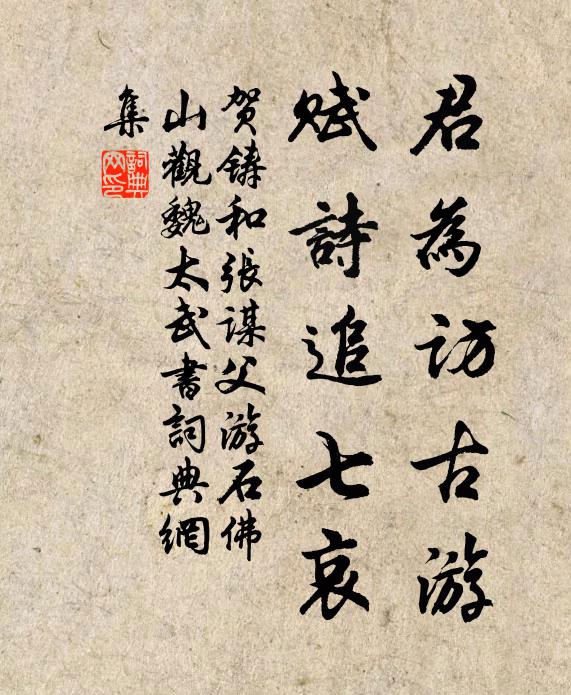 君為访古游
賦詩追七哀
贺鑄和張谋父游石佛
山觀魏太武書詞典網
集
詞典
网印